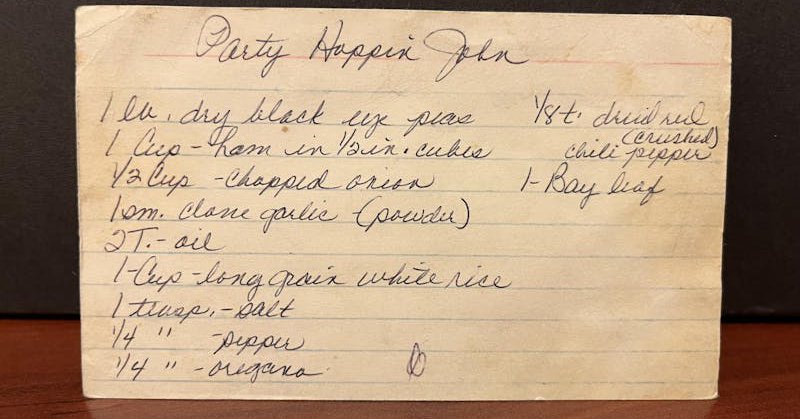 Party Hoppin John
1 lb. dry black eye peas
1 Cup - ham in 1/2 in. cubes
1/2 Cup - chopped onion
1 sm. clove garlic (powder)
2 T. - oil
1 - Cup - long grain white rice
1 teasp. - salt
1/4 " - pepper
1/4 " - oregano
1/8 t. dried red
(crushed)
chili pepper
1 - Bay leaf